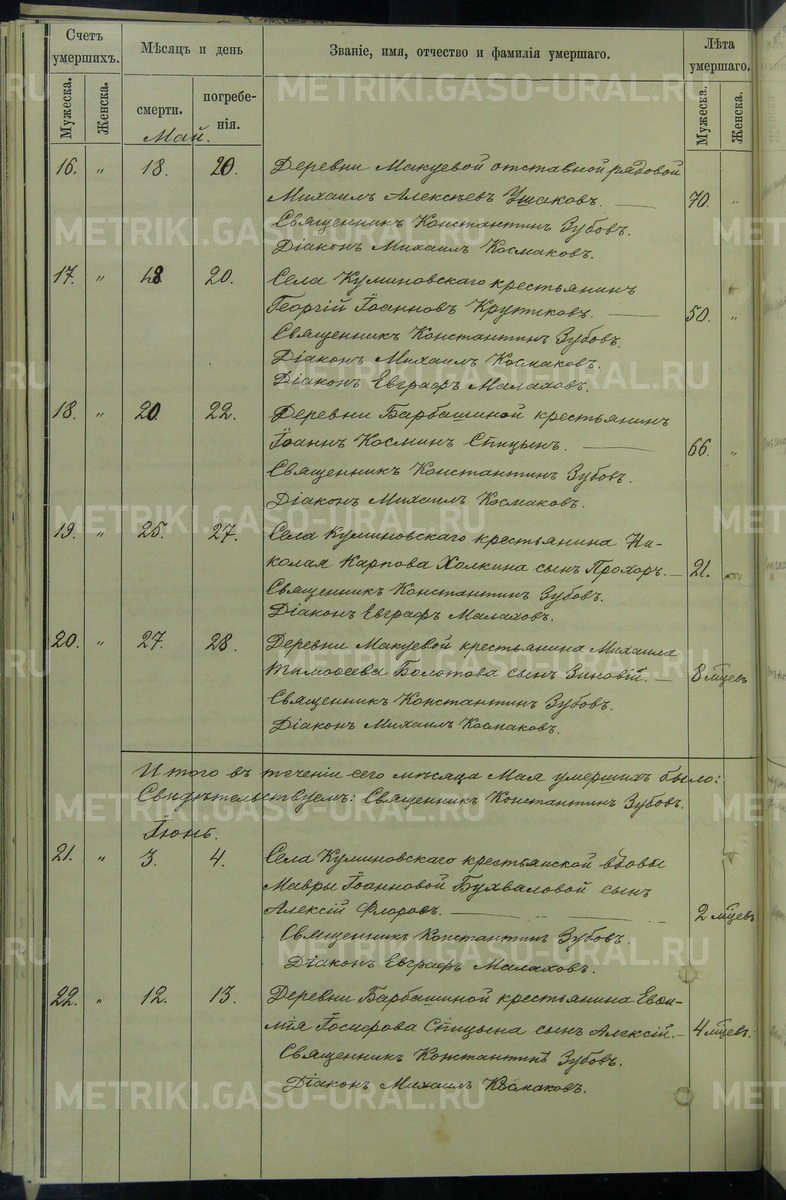 Счетъ умершихъ.
Мѣсяцъ и день
Званіе, имя, отчество и фамилія умершаго.
Лѣта умершаго.
Мужеска.
Женска.
смерти.
погребенія.
Мужеска.
Женска.
Май.
16. " 18. 20. Деревни Макуевой отставной рядовой
Михаилъ Алексѣевъ Ушаковъ. — 70. "
Священникъ Константинъ Зубовъ.
Діаконъ Михаилъ Космаковъ.
17. " 18 20. Села Куминовскаго крестьянинъ
Георгій Іоанновъ Крутиковъ. — 50. "
Священникъ Константинъ Зубовъ.
Діаконъ Михаилъ Космаковъ.
Діаконъ Евграфъ Малаховъ.
18. " 20. 22. Деревни Барбашиной крестьянинъ
Іоаннъ Косминъ Спицынъ. — 66. "
Священникъ Константинъ Зубовъ.
Діаконъ Михаилъ Космаковъ.
19. " 25. 27. Села Куминовскаго крестьянина Ни-
колая Карпова Холкина сынъ Прохоръ. — 21. "
Священникъ Константинъ Зубовъ.
Діаконъ Евграфъ Малаховъ.
20. " 27. 28. Деревни Макуевой крестьянина Михаила
Тимоѳеева Болотова сынъ Зиновій. — 8 мцевъ
Священникъ Константинъ Зубовъ.
Діаконъ Михаилъ Космаковъ.
Итого въ теченіи сего мѣсяца Мая умершихъ было:
Свидѣтельствуемъ: Священникъ Константинъ Зубовъ.
Іюнь.
21. " 3. 4. Села Куминовскаго крестьянской вдовы
Мавры Іоанновой Бухваловой сынъ
Алексій Флоровъ. — 2 мцевъ
Священникъ Константинъ Зубовъ.
Діаконъ Евграфъ Малаховъ.
22. " 12. 13. Деревни Барбашиной крестьянина Евѳи-
мія Іосифова Спицына сынъ Алексій. — 4 мцевъ.
Священникъ Константинъ Зубовъ.
Діаконъ Михаилъ Космаковъ.
METRIKI.GASO-URAL.RU